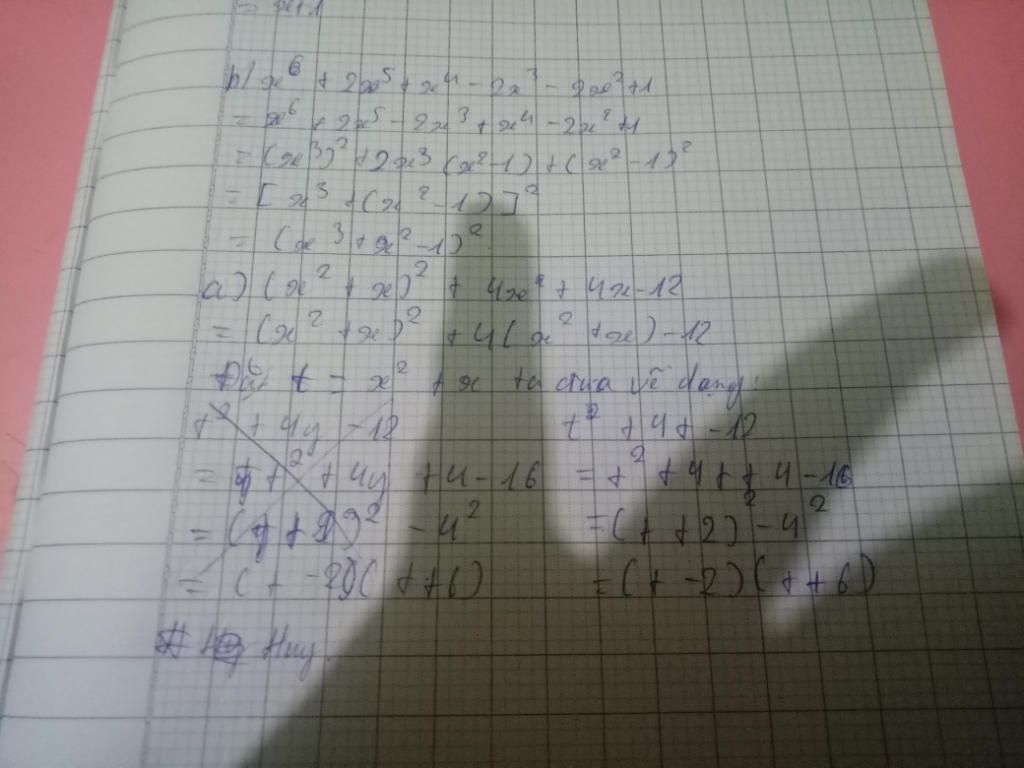 b) x⁶ + 2x⁵ + x⁴ - 2x³ - 2x² + 1
= x⁶ + 2x⁵ - 2x³ + x⁴ - 2x² + 1
= (x³)² + 2x³ (x² - 1) + (x² - 1)²
= [x³ + (x² - 1)]²
= (x³ + x² - 1)²
a) (x² + x)² + 4x² + 4x - 12
= (x² + x)² + 4(x² + x) - 12
Đặt t = x² + x ta đưa về dạng:
t² + 4y -12 t² + 4t - 12
= t² + 4y + 4 - 16 = t² + 4t + 4 - 16
= (y + 2)² - 4² = (t + 2)² - 4²
= (t - 2)(t + 6) = (t - 2)(t + 6)
Huy